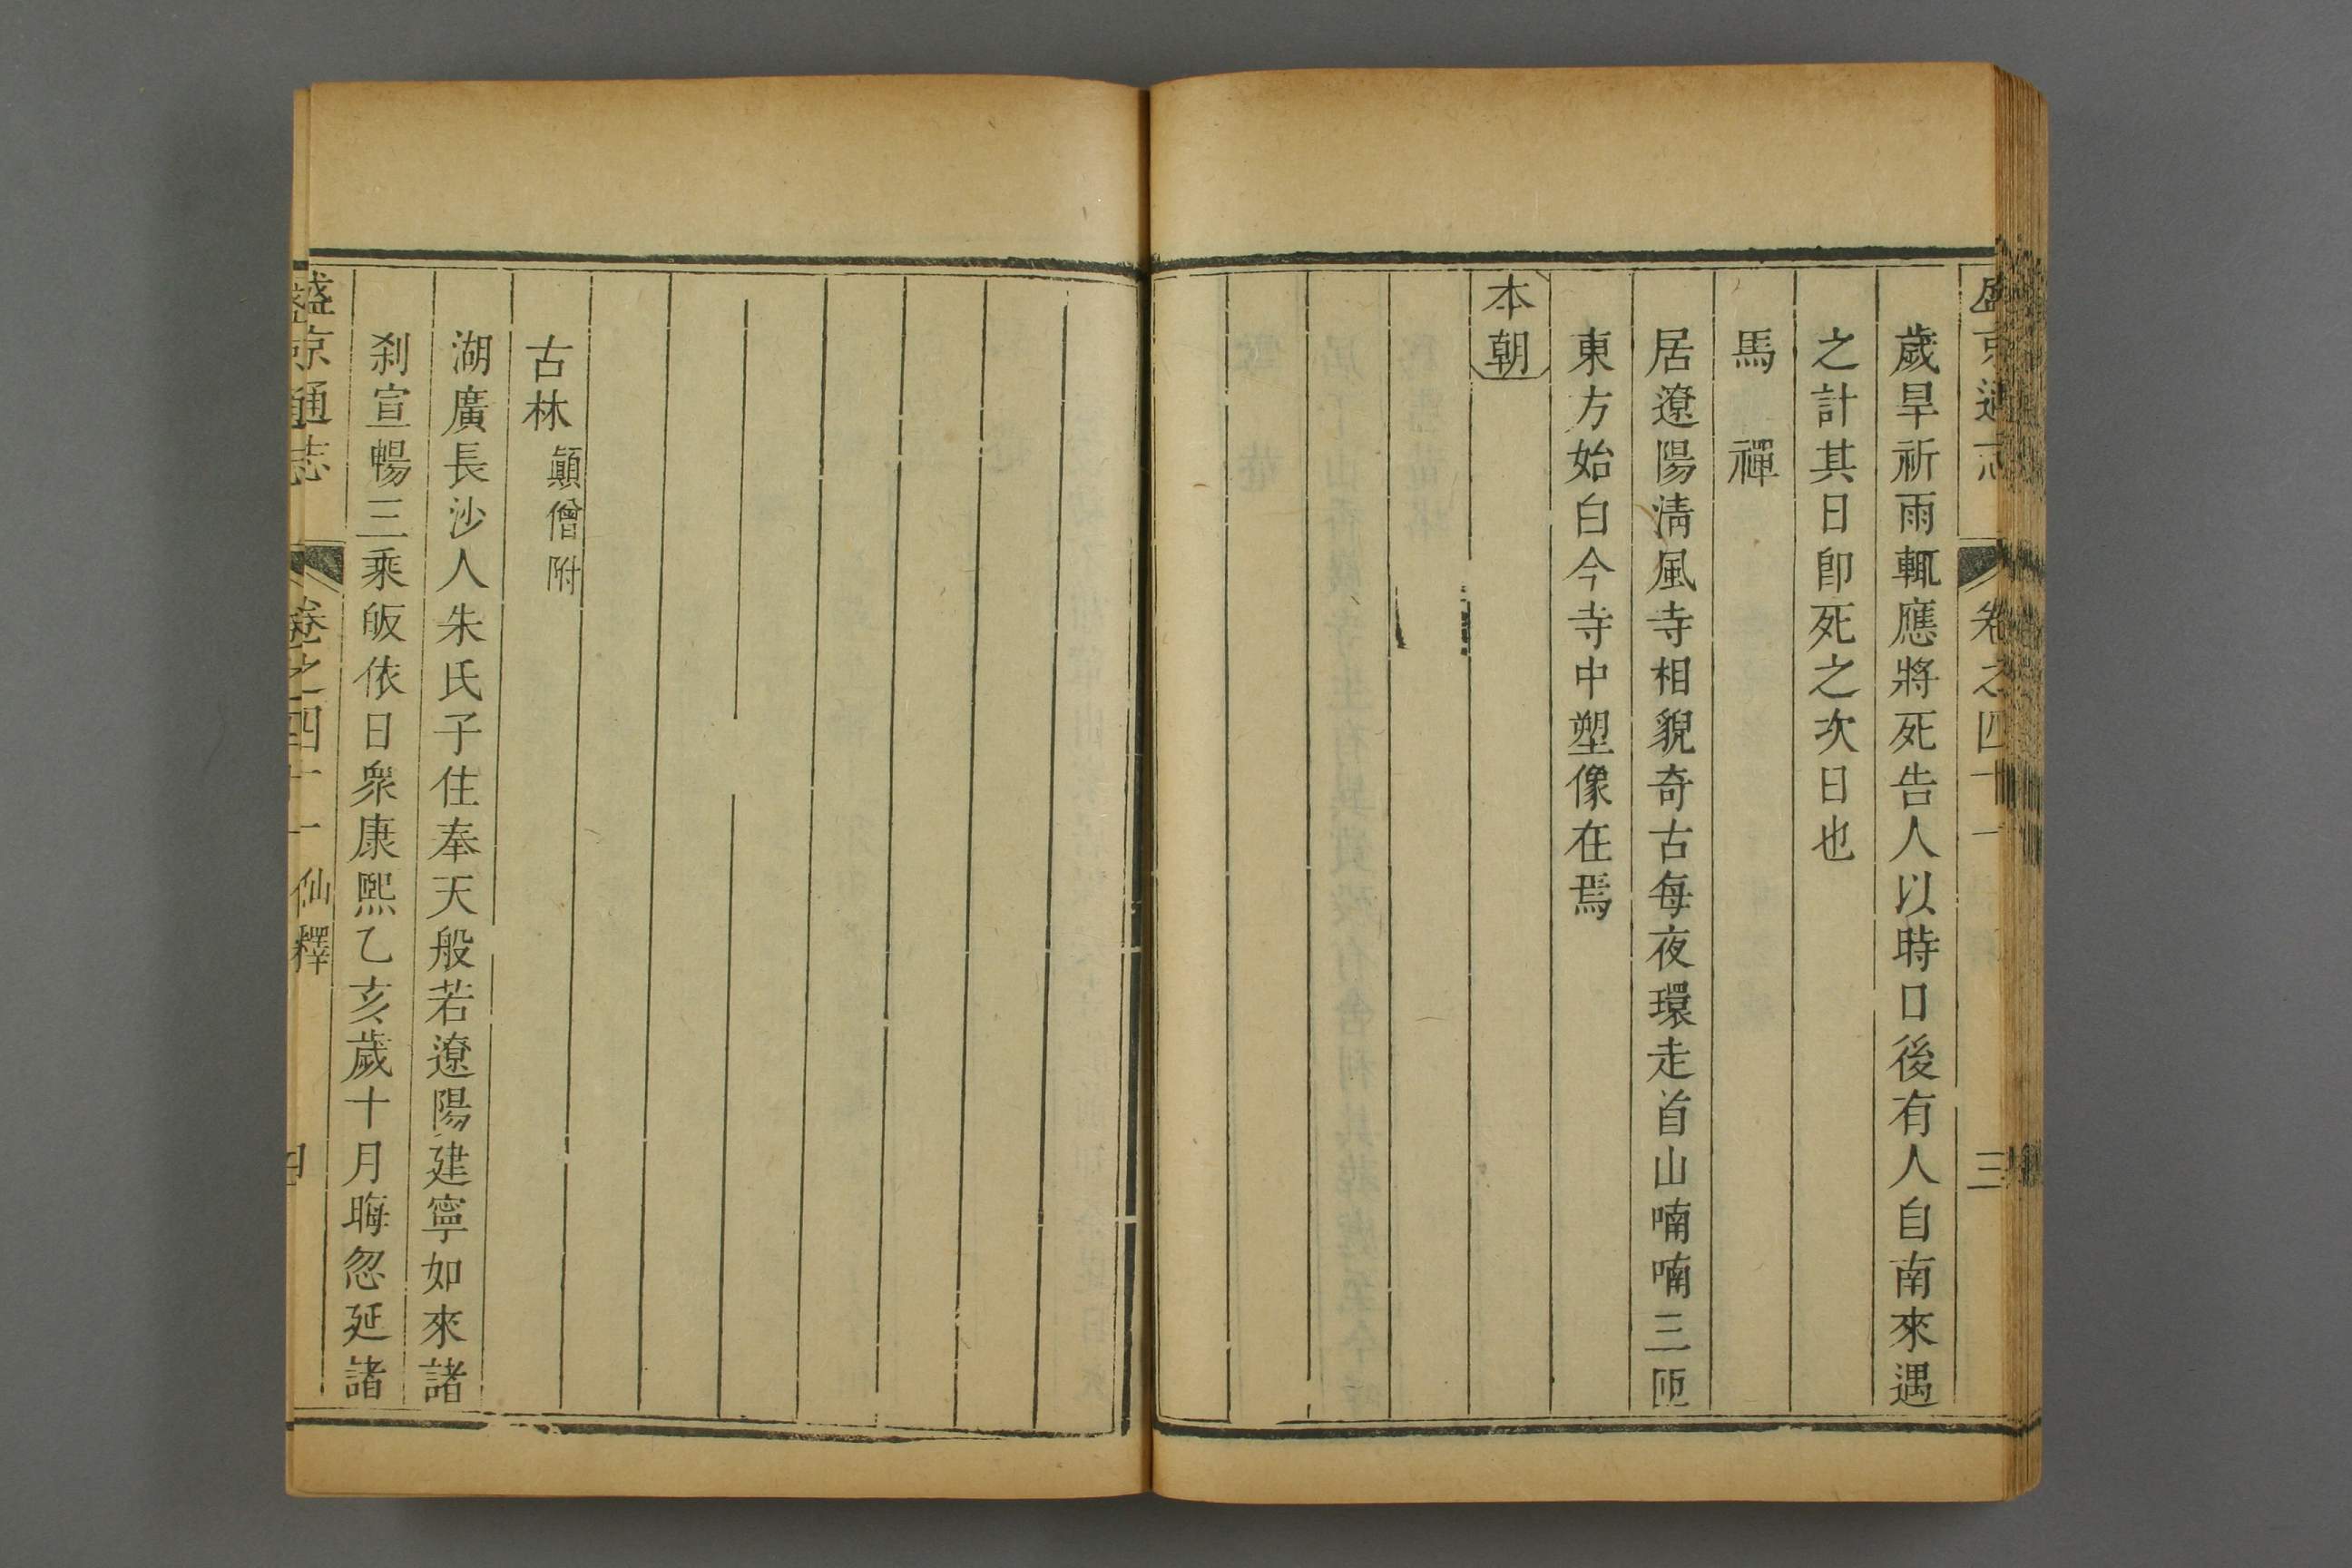 盛京通志 卷之四十一 三
歲旱祈雨輒應將死告人以時日後有人自南來遇
之計其日卽死之次日也
馬禪
居遼陽淸風寺相貌奇古每夜環走首山喃喃三匝
東方始白今寺中塑像在焉
本朝
古林 顚僧附
湖廣長沙人朱氏子住奉天般若遼陽建寧如來諸
刹宣暢三乘皈依日衆康熙乙亥歲十月晦忽延諸
盛京通志 卷之四十一 仙釋 四